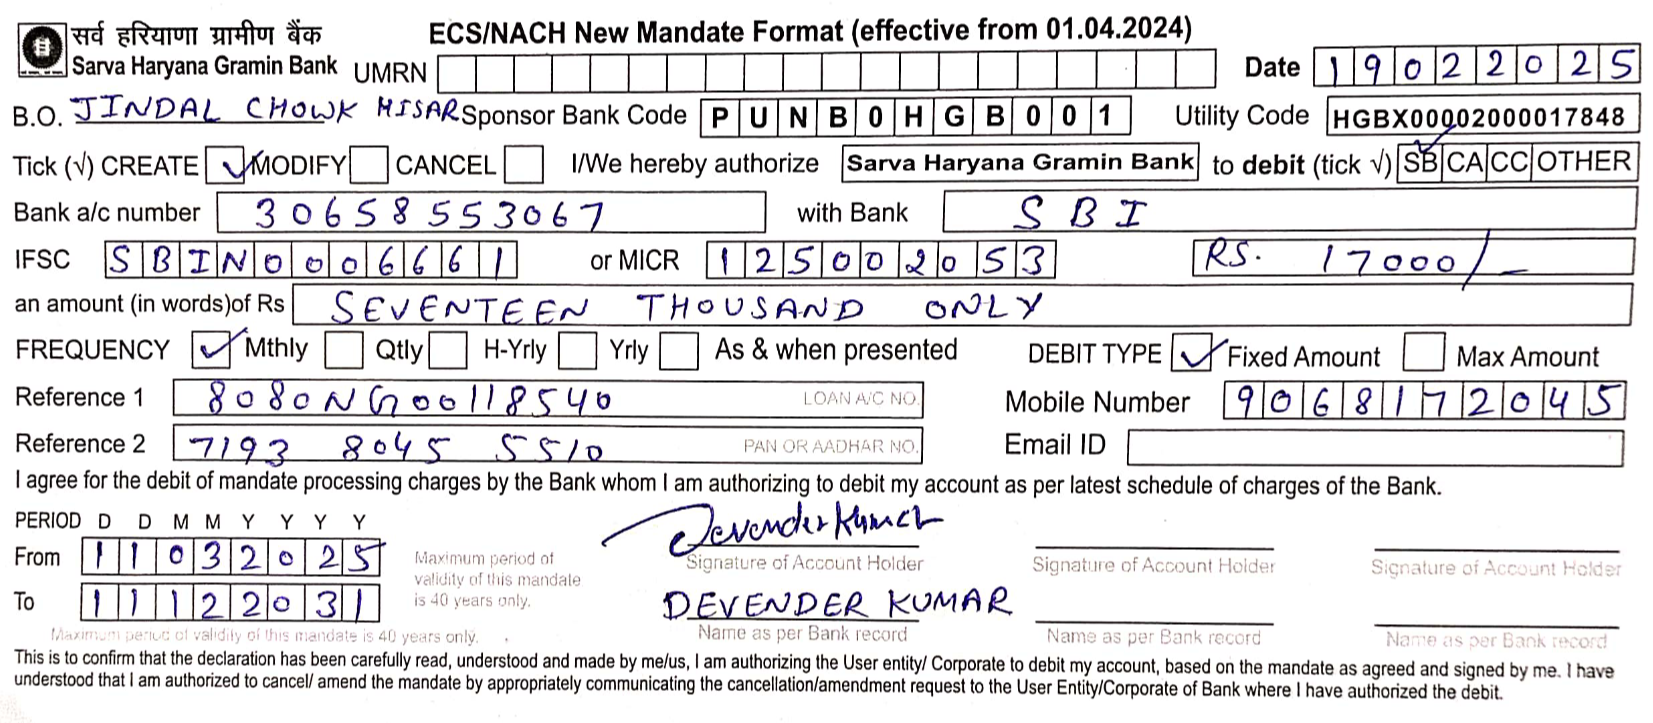 सर्व हरियाणा ग्रामीण बैंक ECS/NACH New Mandate Format (effective from 01.04.2024)
Sarva Haryana Gramin Bank UMRN Date 19022025
B.O. JINDAL CHOWK HISAR Sponsor Bank Code PUNB0HGB001 Utility Code HGBX00002000017848
Tick (√) CREATE ✓ MODIFY CANCEL I/We hereby authorize Sarva Haryana Gramin Bank to debit (tick √) SB ✓ CA CC OTHER
Bank a/c number 30658553067 with Bank SBI
IFSC SBIN0006661 or MICR 125002053 RS. 17000/-
an amount (in words)of Rs SEVENTEEN THOUSAND ONLY
FREQUENCY ✓ Mthly Qtly H-Yrly Yrly As & when presented DEBIT TYPE ✓ Fixed Amount Max Amount
Reference 1 8080NG00118540 LOAN A/C NO. Mobile Number 9068172045
Reference 2 7193 8045 5510 PAN OR AADHAR NO. Email ID
I agree for the debit of mandate processing charges by the Bank whom I am authorizing to debit my account as per latest schedule of charges of the Bank.
PERIOD D D M M Y Y Y Y
From 11032025 Maximum period of validity of this mandate is 40 years only. Devender Kumar
Signature of Account Holder Signature of Account Holder Signature of Account Holder
To 11122031 DEVENDER KUMAR
Maximum period of validity of this mandate is 40 years only. Name as per Bank record Name as per Bank record Name as per Bank record
This is to confirm that the declaration has been carefully read, understood and made by me/us, I am authorizing the User entity/ Corporate to debit my account, based on the mandate as agreed and signed by me. I have
understood that I am authorized to cancel/ amend the mandate by appropriately communicating the cancellation/amendment request to the User Entity/Corporate of Bank where I have authorized the debit.